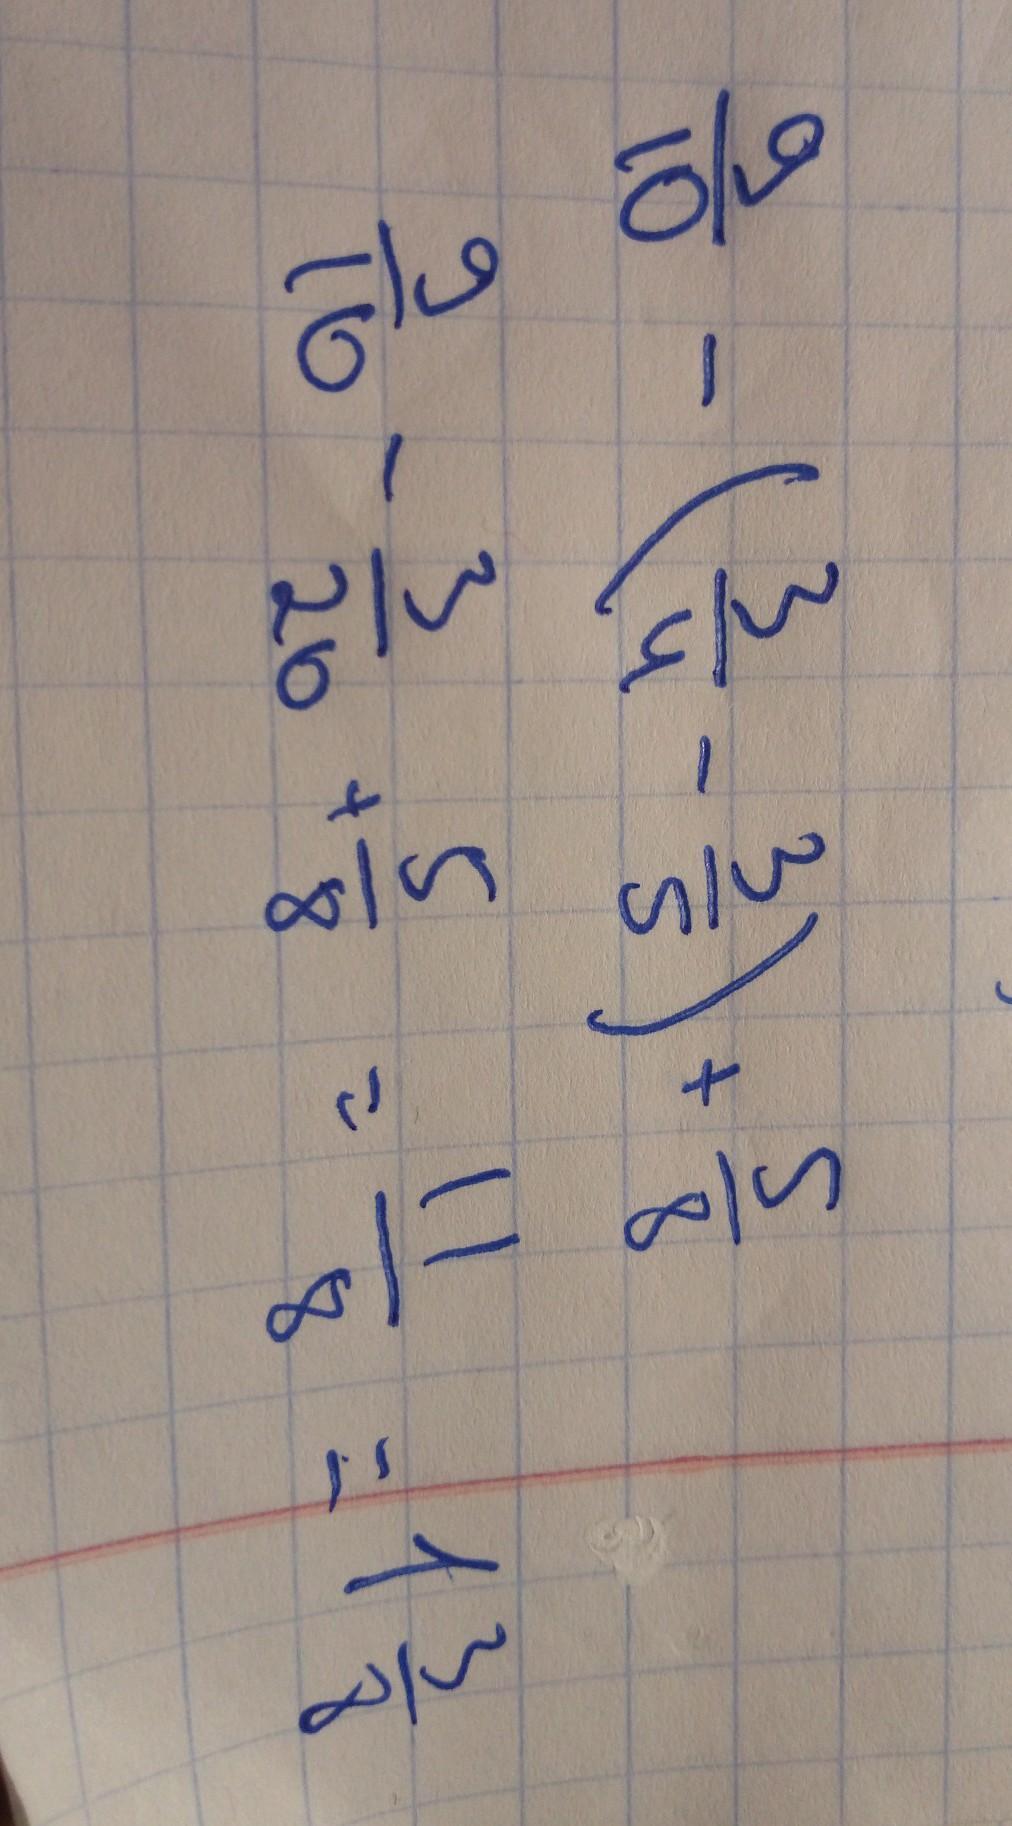 9/10 - (3/4 - 3/5) + 5/8
9/10 - 3/20 + 5/8 = 11/8 = 1 3/8